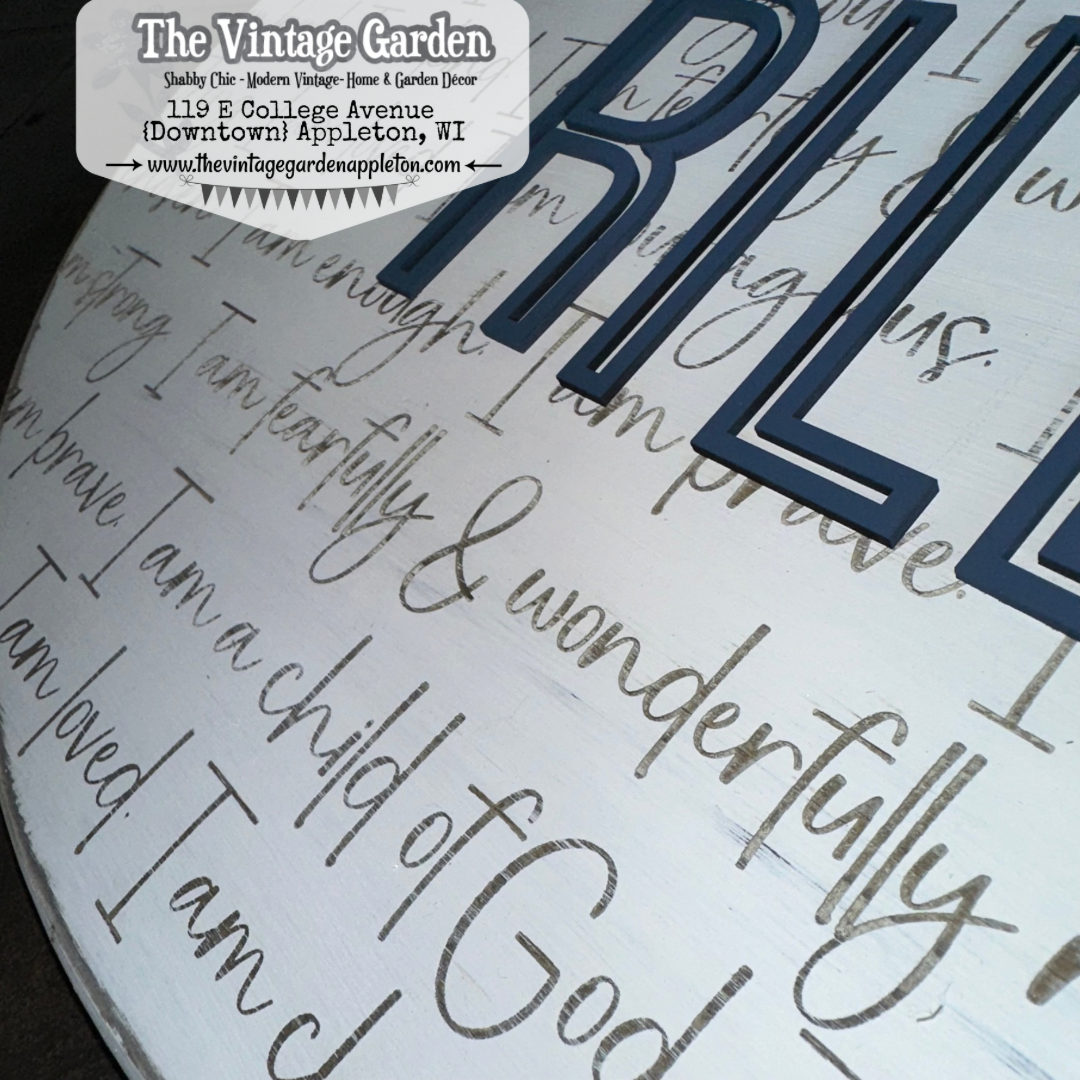 The Vintage Garden
Shabby Chic - Modern Vintage- Home & Garden Décor
119 E College Avenue
{Downtown} Appleton, WI
www.thevintagegardenappleton.com
RLL
I
&
I am enough.
am strong I am fearfully & wonderfully
I am brave.
I
am brave. I am a child of God
I am loved. I am